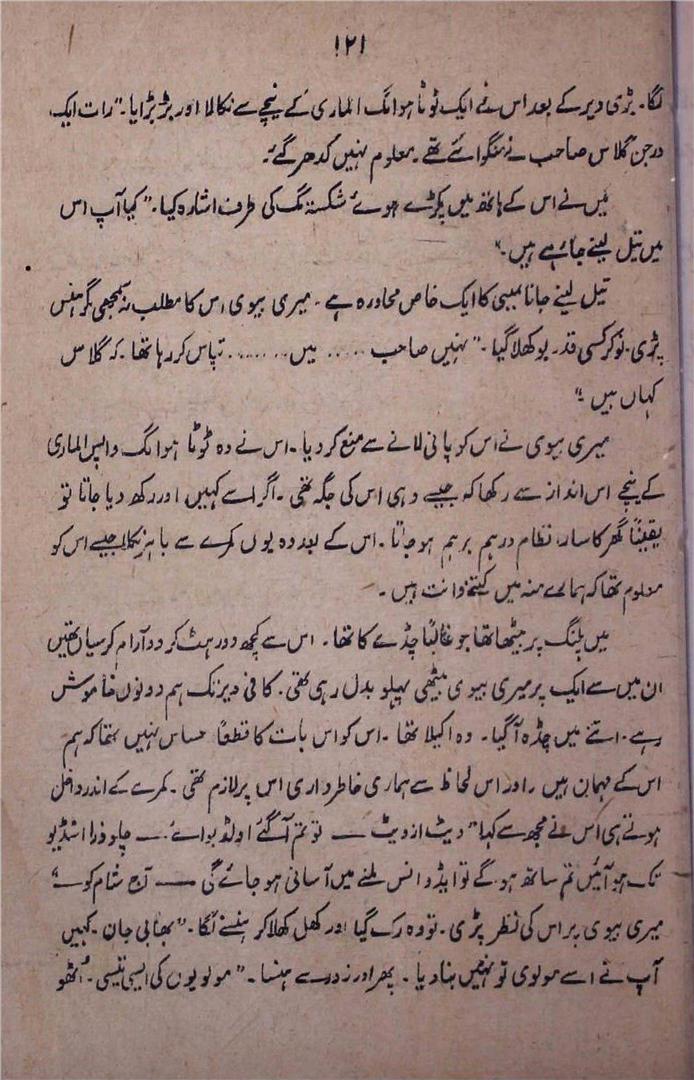 ۱۲۱
لگا۔ بڑی دیر کے بعد اس نے ایک ٹوٹا ہوا مگ الماری کے نیچے سے نکالا اور بڑبڑایا۔ "رات ایک
درجن گلاس صاحب نے منگوائے تھے۔ معلوم نہیں کدھر گئے۔
میں نے اس کے ہاتھ میں پکڑے ہوئے شکستہ مگ کی طرف اشارہ کیا۔ "کیا آپ اس
میں تیل لینے جا رہے ہیں۔"
تیل لینے جانا بمبئی کا ایک خاص محاورہ ہے۔ میری بیوی اس کا مطلب نہ سمجھی مگر ہنس
پڑی۔ نوکر کسی قدر بوکھلا گیا۔ "نہیں صاحب ..... میں ....... تپاس کر رہا تھا۔ کہ گلاس
کہاں ہیں۔"
میری بیوی نے اس کو پانی لانے سے منع کر دیا۔ اس نے وہ ٹوٹا ہوا مگ واپس الماری
کے نیچے اس انداز سے رکھا کہ جیسے وہی اس کی جگہ تھی۔ اگر اسے کہیں اور رکھ دیا جاتا تو
یقیناً گھر کا سارا نظام درہم برہم ہو جاتا۔ اس کے بعد وہ یوں کمرے سے باہر نکلا جیسے اس کو
معلوم تھا کہ ہمارے منہ میں کتنے دانت ہیں۔
میں پلنگ پر بیٹھا تھا جو غالباً چڈے کا تھا۔ اس سے کچھ دور ہٹ کر دو آرام کرسیاں تھیں
ان میں سے ایک پر میری بیوی بیٹھی پہلو بدل رہی تھی۔ کافی دیر تک ہم دونوں خاموش
رہے۔ اتنے میں چڈہ آ گیا۔ وہ اکیلا تھا۔ اس کو اس بات کا قطعاً احساس نہیں تھا کہ ہم
اس کے مہمان ہیں۔ اور اس لحاظ سے ہماری خاطر داری اس پر لازم تھی۔ کمرے کے اندر داخل
ہوتے ہی اس نے مجھ سے کہا "ویٹ از ویٹ —— تو تم آ گئے اولڈ بوائے۔ —— چلو ذرا اسٹڈیو
تک ہو آئیں تم ساتھ ہو گے تو ایڈوانس ملنے میں آسانی ہو جائے گی —— آج شام کو —"
میری بیوی پر اس کی نظر پڑی۔ تو وہ رک گیا اور کھل کھلا کر ہنسنے لگا۔ "بھابی جان۔ کہیں
آپ نے اسے مولوی تو نہیں بنا دیا۔ پھر اور زور سے ہنسا۔ "مولویوں کی ایسی تیسی۔ اُٹھو